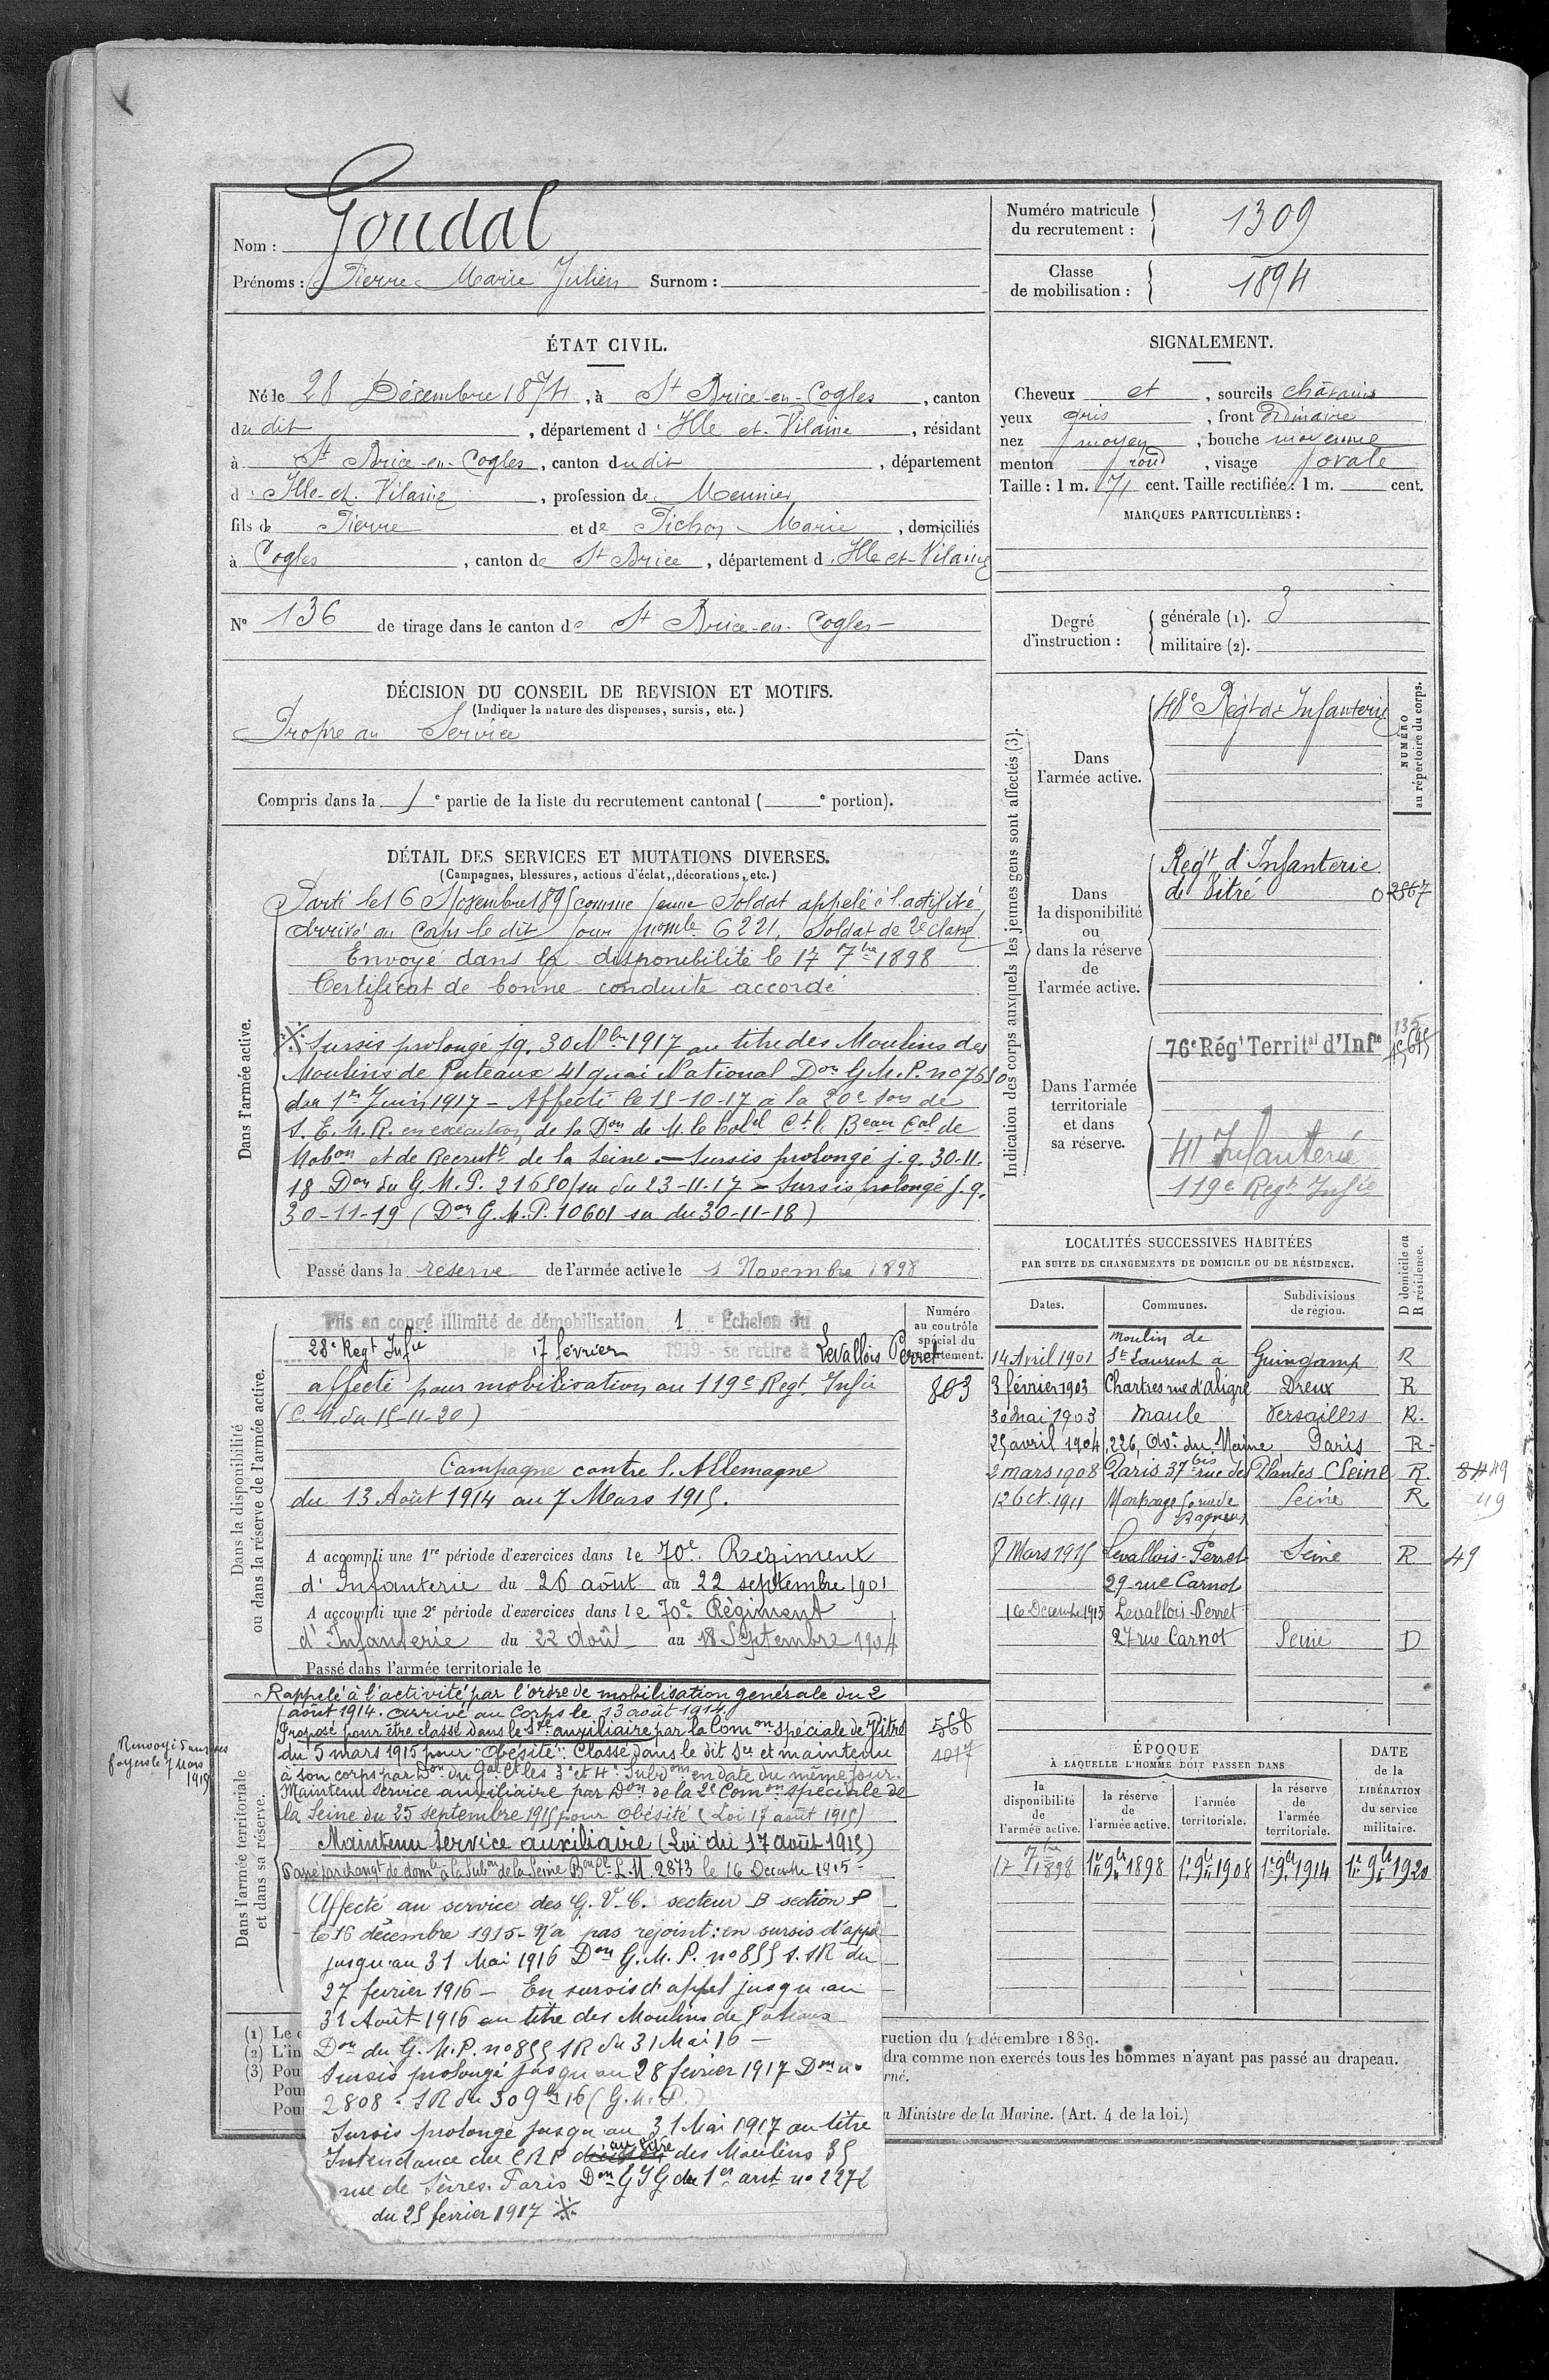 Nom : Goudal
Prénoms : Pierre Marie Julien Surnom :
Numéro matricule du recrutement : 1309
Classe de mobilisation : 1894
ÉTAT CIVIL.
Né le 28 Décembre 1874, à St Brice-en-Cogles, canton
du dit, département d'Ille et-Vilaine, résidant
à St Brice-en-Cogles, canton du dit, département
d'Ille-et-Vilaine, profession de Meunier
fils de Pierre et de Pichon Marie, domiciliés
à Cogles, canton de St Brice, département d'Ille-et-Vilaine
N° 136 de tirage dans le canton de St Brice-en-Cogles
SIGNALEMENT.
Cheveux et, sourcils châtains
yeux gris, front ordinaire
nez moyen, bouche moyenne
menton rond, visage ovale
Taille : 1 m. 71 cent. Taille rectifiée : 1 m. cent.
MARQUES PARTICULIÈRES :
Degré d'instruction :
générale (1). 3
militaire (2).
DÉCISION DU CONSEIL DE REVISION ET MOTIFS.
(Indiquer la nature des dispenses, sursis, etc.)
Propre au Service
Compris dans la 1e partie de la liste du recrutement cantonal ( e portion).
DÉTAIL DES SERVICES ET MUTATIONS DIVERSES.
(Campagnes, blessures, actions d'éclat, décorations, etc.)
Dans l'armée active.
Parti le 16 Novembre 1895 comme jeune Soldat appelé à l'activité
arrivé au Corps le dit jour, nomle 6221, Soldat de 2e classe
Envoyé dans la disponibilité le 17 7bre 1898
Certificat de bonne conduite accordé
※ Sursis prolongé jq. 30 Nbre 1917 au titre des Moulins des
Moulins de Puteaux 41 quai National Don G.M.P. no 7610
du 1er Juin 1917 - Affecté le 15-10-17 à la 20e Son de
S.E.M.R. en exécution de la Don de M. le Colel Ct le Beau Cal de
Mobon et de Recrutt de la Seine. - Sursis prolongé j.q. 30-11-
18 Don du G.M.P. 21650/SR du 23-11-17 - Sursis prolongé j.q.
30-11-19 (Don G.M.P. 10601 SR du 30-11-18)
Passé dans la réserve de l'armée active le 1 Novembre 1898
Indication des corps auxquels les jeunes gens sont affectés (3).
NUMÉRO au répertoire du corps.
Dans l'armée active.
48e Régt d'Infanterie
Dans la disponibilité ou dans la réserve de l'armée active.
Régt d'Infanterie
de Vitré 0 2867
Dans l'armée territoriale et dans sa réserve.
76e Régt Territal d'Infie
41 Infanterie
119e Regt Infie
Dans la disponibilité ou dans la réserve de l'armée active.
Numéro au contrôle spécial du recrutement.
Mis en congé illimité de démobilisation 1e Échelon du
28e Regt Infie le 17 février 1919 - se retire à Levallois Perret
affecté pour mobilisation au 119e Regt Infie
803
(C.M. du 15-11-20)
Campagne contre l'Allemagne
du 13 Août 1914 au 7 Mars 1915.
A accompli une 1re période d'exercices dans le 70e Régiment
d'Infanterie du 26 août au 22 septembre 1901
A accompli une 2e période d'exercices dans le 70e Régiment
d'Infanterie du 22 Août au 18 Septembre 1904
Passé dans l'armée territoriale le
LOCALITÉS SUCCESSIVES HABITÉES
PAR SUITE DE CHANGEMENTS DE DOMICILE OU DE RÉSIDENCE.
Dates. Communes. Subdivisions de région. D domicile ou R résidence.
14 Avril 1901 moulin de St Laurent à Guingamp R
3 février 1903 Chartres rue d'Aligre Dreux R
30 Mai 1903 Maule Versailles R.
25 avril 1904 226, Ave du Maine Paris R
2 mars 1908 Paris 37 bis rue des Plantes (Seine R. 8449
12 Oct. 1911 Montrouge rue de Bagneux Seine R 49
8 Mars 1915 Levallois-Perret Seine R 49
29 rue Carnot
16 Decembre 1915 Levallois-Perret
27 rue Carnot Seine D
Dans l'armée territoriale et dans sa réserve.
Rappelé à l'activité par l'ordre de mobilisation générale du 2
août 1914. arrivé au Corps le 13 août 1914.
Proposé pour être classé dans le Sce auxiliaire par la Comon spéciale de Vitré
568
du 5 mars 1915 pour "Obésité". Classé dans le dit Sce et maintenu
4017
à son corps par Don du Gal Ct les 3e et 4e Subdons en date du même jour.
Renvoyé dans ses foyers le 7 Mars 1915
Maintenu service auxiliaire par Don de la 2e Comon spéciale de
la Seine du 25 septembre 1915 pour obésité (Loi 17 août 1915)
Maintenu service auxiliaire (Loi du 17 août 1915)
Passé par changt de domle à la Subon de la Seine Bon Cl L.M. 2873 le 16 Decembre 1915 -
Affecté au service des G.V.C. secteur B section P
le 16 décembre 1915 - N'a pas rejoint : en sursis d'appel
jusqu'au 31 Mai 1916 Don G.M.P. no 855 S.SR du
27 fevrier 1916 - En sursis d'appel jusqu'au
31 Août 1916 au titre des Moulins de Puteaux
Don du G.M.P. no 855 SR du 31 Mai 16 -
Sursis prolongé jusqu'au 28 fevrier 1917 Don no
2808 - SR du 30 9bre 16 (G.M.P.)
Sursis prolongé jusqu'au 31 Mai 1917 au titre
Intendance du CRP au titre des Moulins 35
rue de Sèvres. Paris Don GIG du 1er arrt no 2272
du 25 fevrier 1917 ※
ÉPOQUE
À LAQUELLE L'HOMME DOIT PASSER DANS
la disponibilité de l'armée active. la réserve de l'armée active. l'armée territoriale. la réserve de l'armée territoriale.
DATE de la LIBÉRATION du service militaire.
17 7bre 1898 1er 9bre 1898 1er 9bre 1908 1er 9bre 1914 1er 9bre 1920
(1) Le
(2) L'in
(3) Pou
Pou
Pou
ruction du 4 décembre 1889.
dra comme non exercés tous les hommes n'ayant pas passé au drapeau.
rné.
u Ministre de la Marine. (Art. 4 de la loi.)